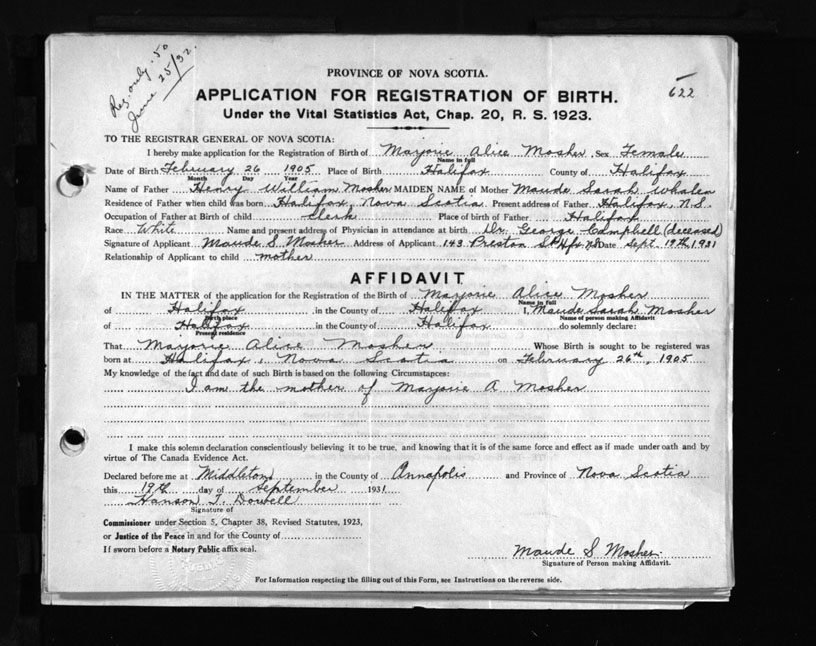 Reg. only .50
June 25/32.
622
PROVINCE OF NOVA SCOTIA.
APPLICATION FOR REGISTRATION OF BIRTH.
Under the Vital Statistics Act, Chap. 20, R. S. 1923.
TO THE REGISTRAR GENERAL OF NOVA SCOTIA:
I hereby make application for the Registration of Birth of Marjorie Alice Mosher Sex Female
Name in full
Date of Birth February 26 1905 Place of Birth Halifax County of Halifax
Month Day Year
Name of Father Henry William Mosher MAIDEN NAME of Mother Maude Sarah Whalen
Residence of Father when child was born Halifax, Nova Scotia Present address of Father Halifax, N.S.
Occupation of Father at Birth of child Clerk Place of birth of Father Halifax
Race White Name and present address of Physician in attendance at birth Dr. George Campbell (deceased)
Signature of Applicant Maude S. Mosher Address of Applicant 143 Preston St Hfx NS Date Sept. 19th, 1931
Relationship of Applicant to child mother
AFFIDAVIT
IN THE MATTER of the application for the Registration of the Birth of Marjorie Alice Mosher
Name in full
of Halifax in the County of Halifax I, Maude Sarah Mosher
Birth place Name of person making Affidavit
of Halifax in the County of Halifax do solemnly declare:
Present residence
That Marjorie Alice Mosher Whose Birth is sought to be registered was
born at Halifax, Nova Scotia on February 26th, 1905
My knowledge of the fact and date of such Birth is based on the following Circumstances:
I am the mother of Marjorie A Mosher
I make this solemn declaration conscientiously believing it to be true, and knowing that it is of the same force and effect as if made under oath and by
virtue of The Canada Evidence Act.
Declared before me at Middleton in the County of Annapolis and Province of Nova Scotia
this 19th day of September 1931
Hanson T. Dowell
Signature of
Commissioner under Section 5, Chapter 38, Revised Statutes, 1923,
or Justice of the Peace in and for the County of
If sworn before a Notary Public affix seal.
Maude S Mosher.
Signature of Person making Affidavit.
For Information respecting the filling out of this Form, see Instructions on the reverse side.